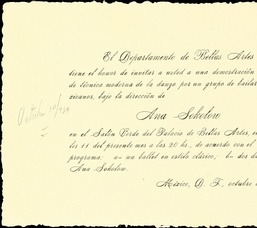 El Departamento de Bellas Artes
tiene el honor de invitar a usted a una demostración
de técnica moderna de la danza por un grupo de bailar
xicanos, bajo la dirección de
Ana Sokolow
en el Salón Verde del Palacio de Bellas Artes, e
les 11 del presente mes a las 20 hs., de acuerdo con el
programa: a- un ballet en estilo clásico; b- dos d
Ana Sokolow.
México, D. F., octubre d